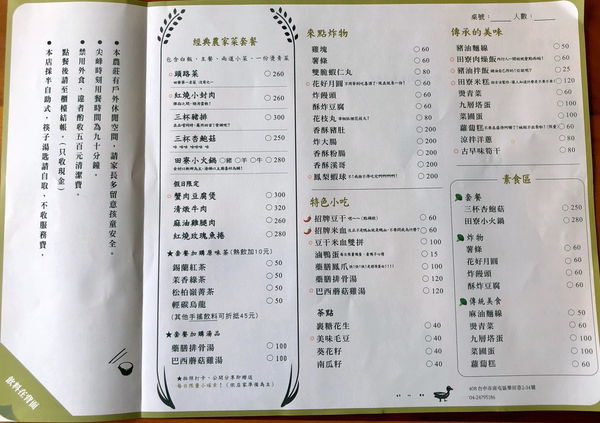 桌號：　　人數：
本農莊有戶外休閒空間，請家長多留意孩童安全。
尖峰時刻用餐時間為九十分鐘。
禁用外食，違者酌收五百元清潔費。
點餐後請至櫃檯結帳。(只收現金)
本店採半自助式，筷子湯匙請自取，不收服務費。
飲料在背面
經典農家菜套餐
包含白飯、主餐、兩道小菜、一份燙青菜
頭路菜 260
紅燒小封肉 260
三杯豬排 300
三杯杏鮑菇 250
田寮小火鍋 豬 羊 牛 280
假日限定
蟹肉豆腐煲 300
清燉牛肉 320
麻油雞腿肉 280
紅燒玫瑰魚捲 280
★套餐加購原味茶(熱飲加10元)
錫蘭紅茶 35
茉香綠茶 35
松柏嶺菁茶 35
輕碳烏龍 35
(其他手搖飲料可折抵45元)
★套餐加購湯品
藥膳排骨湯 100
巴西蘑菇雞湯 100
★拍照打卡、公開分享即贈送
每日限量小味方！(依店家準備為主)
來點炸物
雞塊 60
薯條 60
雙脆蝦仁丸 80
花好月圓 60
炸饅頭 60
酥炸豆腐 60
花枝丸 80
香酥豬肚 90
炸大腸 90
香酥粉腸 90
香酥溪哥 90
鳳梨蝦球 160
特色小吃
招牌豆干 60
招牌米血 60
豆干米血雙拼 100
滷鴨蛋 20
藥膳鳳爪 100
藥膳排骨湯 120
巴西蘑菇雞湯 120
茶點
裹糖花生 40
美味毛豆 40
葵花籽 40
南瓜籽 40
傳統的美味
豬油麵線 50
田寮肉燥飯 30
豬油拌飯 25
田寮米糕 60
燙青菜 50
九層塔蛋 100
菜圃蛋 100
蘿蔔糕 60
涼拌洋蔥 50
古早味筍干 80
素食區
套餐
三杯杏鮑菇 250
田寮小火鍋 280
炸物
薯條 60
花好月圓 60
炸饅頭 60
酥炸豆腐 60
傳統美食
麻油麵線 50
燙青菜 50
九層塔蛋 100
菜圃蛋 100
蘿蔔糕 60
408 台中市南屯區學田巷2-34號
04-24795186